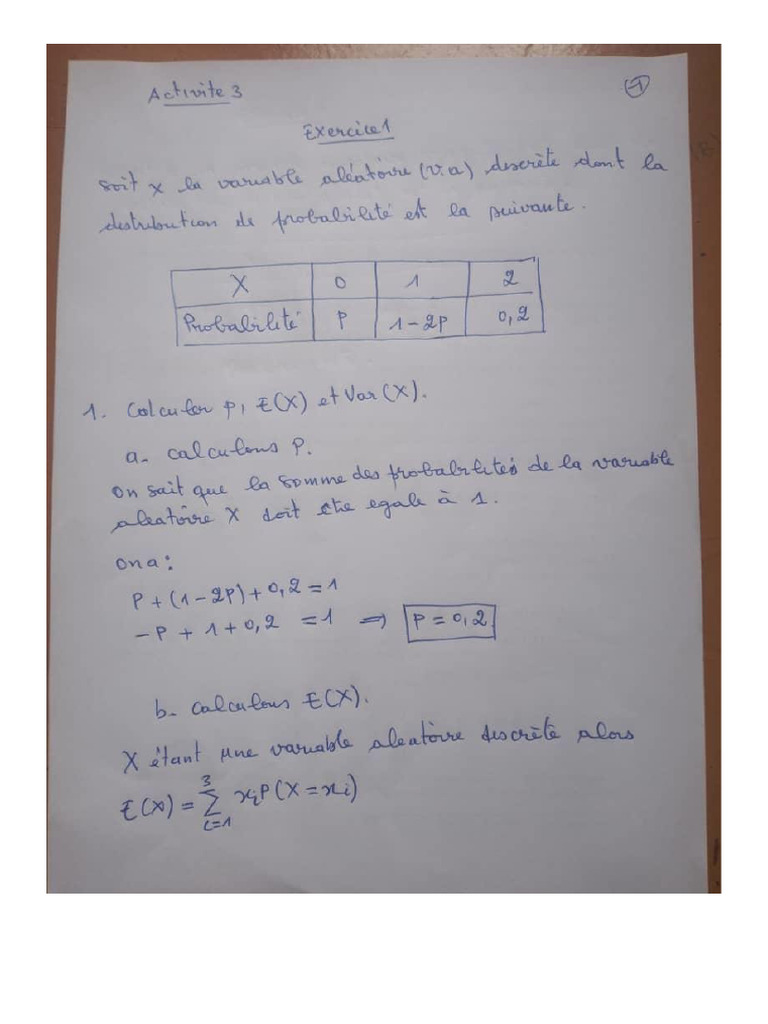 Activite 3
1
Exercice 1
soit x la variable aléatoire (v.a) discrète dont la
distribution de probabilité est la suivante.
X 0 1 2
Probabilité P 1-2p 0,2
1. Calculer p, E(X) et Var(X).
a- calculons P.
on sait que la somme des probabilités de la variable
aleatoire X doit être egale à 1.
on a:
P + (1-2P) + 0,2 = 1
-P + 1 + 0,2 = 1 => P = 0,2
b- calculons E(X).
X étant une variable aleatoire discrète alors
E(X) = ∑ i=1 3 xiP(X = xi)